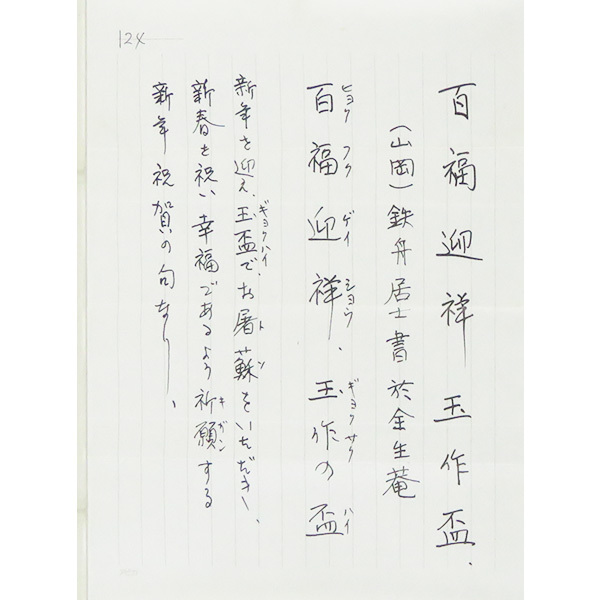 124
百福迎祥玉作盃、
(山岡)鉄舟居士書於全生菴
百福迎祥、玉作の盃
ヒヨク フク ゲイ シヨウ ギヨク サク ハイ
新年を迎え、玉盃でお屠蘇をいただき、
ギヨクハイ トソ
新春を祝い幸福であるよう祈願する
キガン
新年祝賀の句なり、